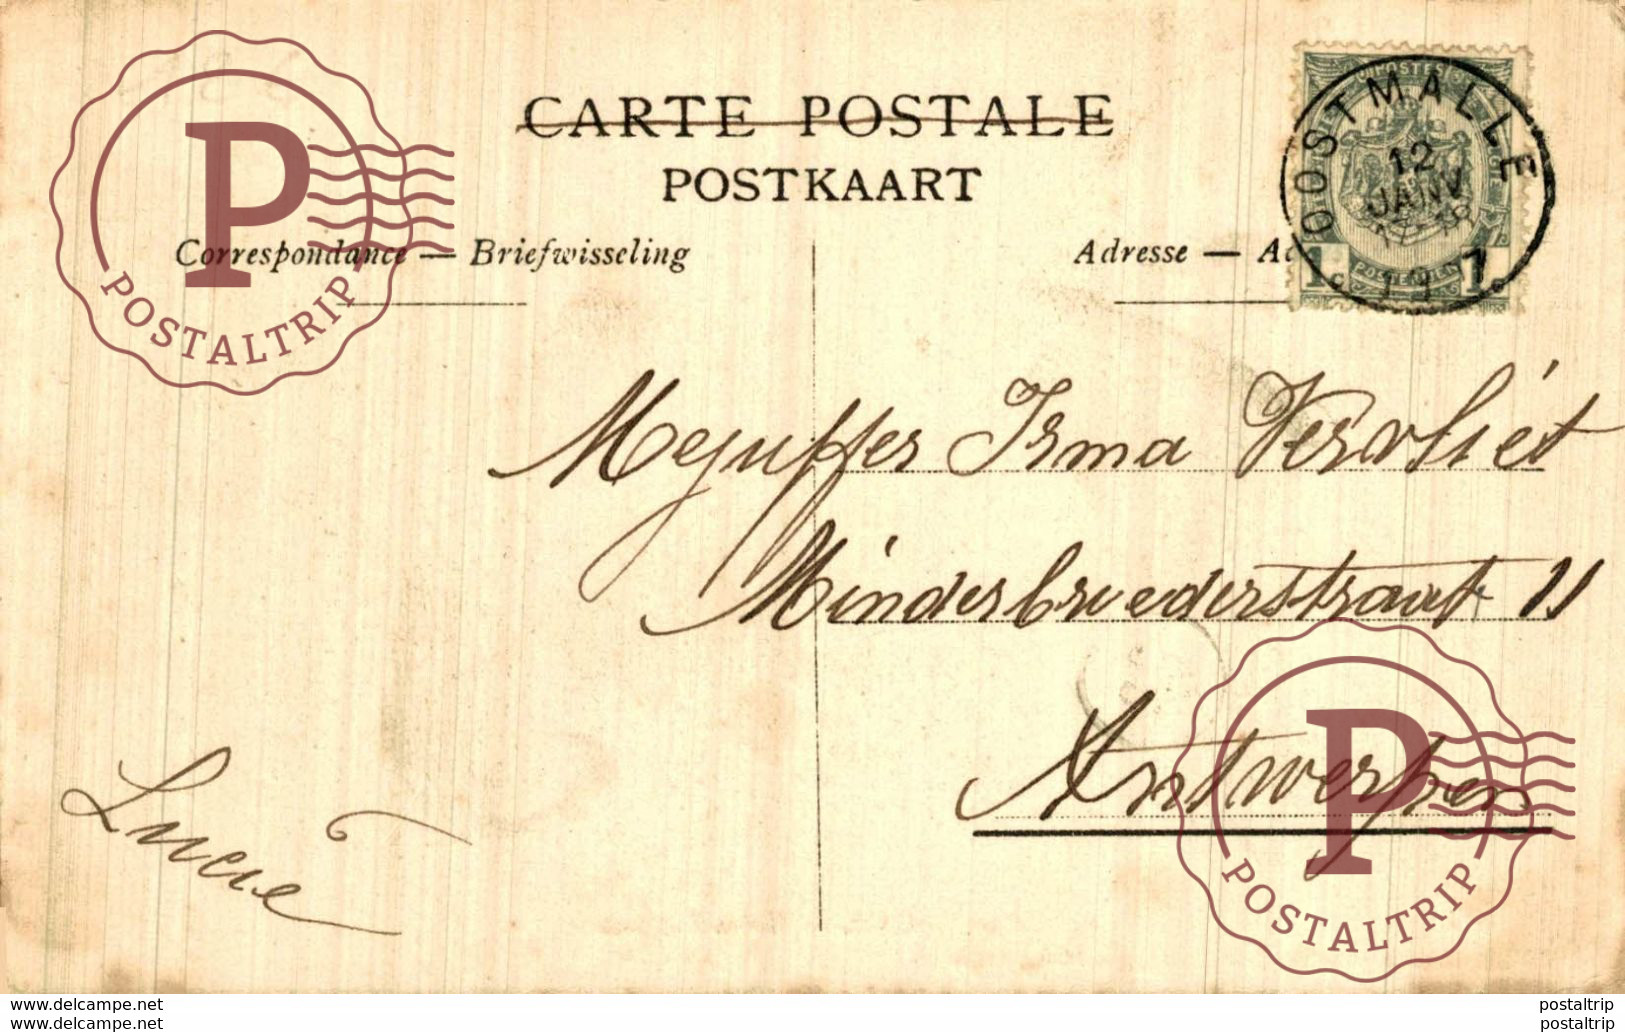 CARTE POSTALE
POSTKAART
Correspondance — Briefwisseling
Adresse —
POSTES
OOSTMALLE
12
JANV
1 1
POSTERIJEN
Mejuffer Irma Vervliét
Minderbruederstraat 11
Antwerpen
Lucie
P
POSTALTRIP
P
POSTALTRIP
www.delcampe.net
postaltrip
www.delcampe.net
postaltrip